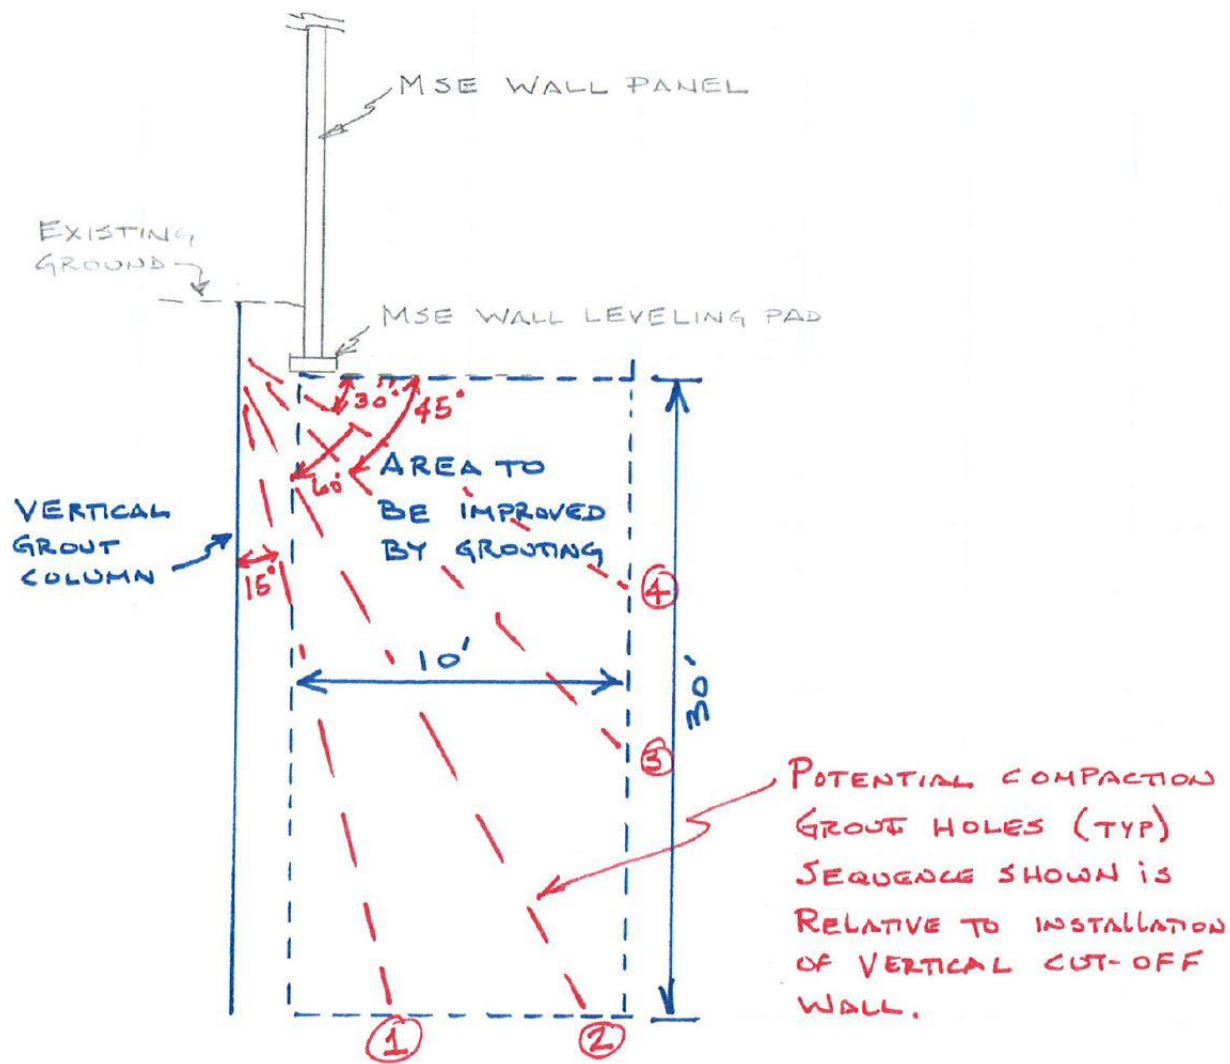 MSE WALL PANEL
EXISTING
GROUND
MSE WALL LEVELING PAD
30°
45°
60°
AREA TO
BE IMPROVED
BY GROUTING
VERTICAL
GROUT
COLUMN
15°
4
10'
30'
3
POTENTIAL COMPACTION
GROUT HOLES (TYP)
SEQUENCE SHOWN IS
RELATIVE TO INSTALLATION
OF VERTICAL CUT-OFF
WALL.
1
2